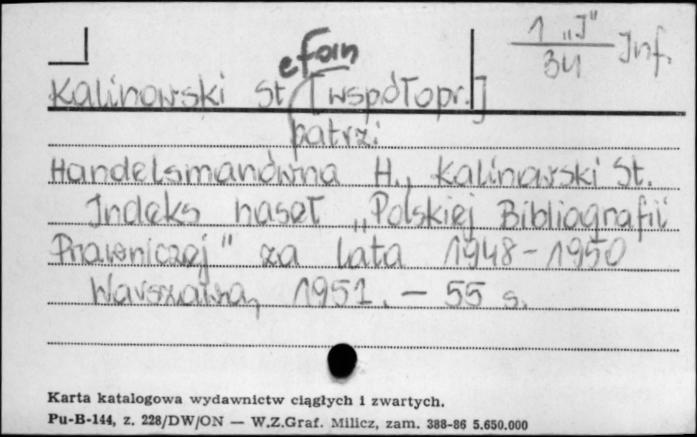 1 „J"
34 Inf.
efan
Kalinowski St [współopr.]
patrz:
Handelsmanówna H., Kalinowski St.
Indeks haseł „Polskiej Bibliografii
Prawniczej" za lata 1948-1950
Warszawa, 1951. - 55 s.
Karta katalogowa wydawnictw ciągłych i zwartych.
Pu-B-144, z. 228/DW/ON — W.Z.Graf. Milicz, zam. 388-86 5.650.000